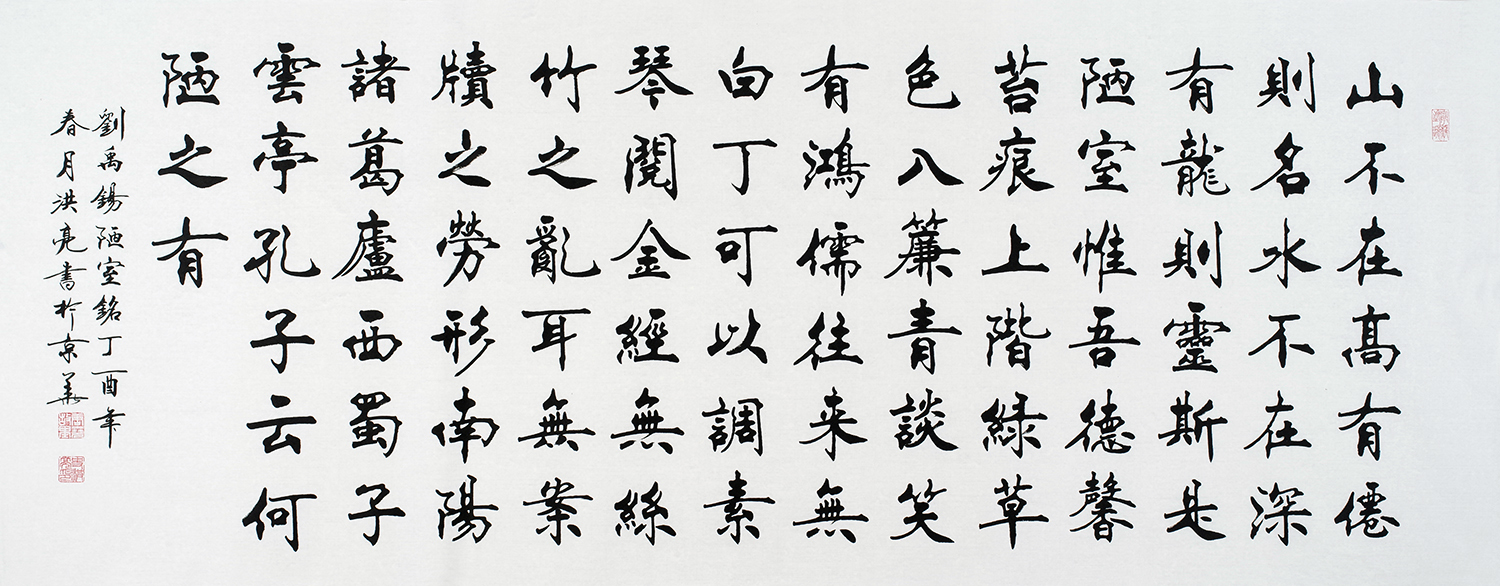 山不在髙有僊
則名水不在深
有龍則靈斯是
陋室惟吾德馨
苔痕上階緑草
色入簾青談笑
有鴻儒往来無
白丁可以調素
琴閱金經無絲
竹之亂耳無案
牘之勞形南陽
諸葛廬西蜀子
雲亭孔子云何
陋之有
劉禹錫陋室銘丁酉年
春月洪亮書於京華